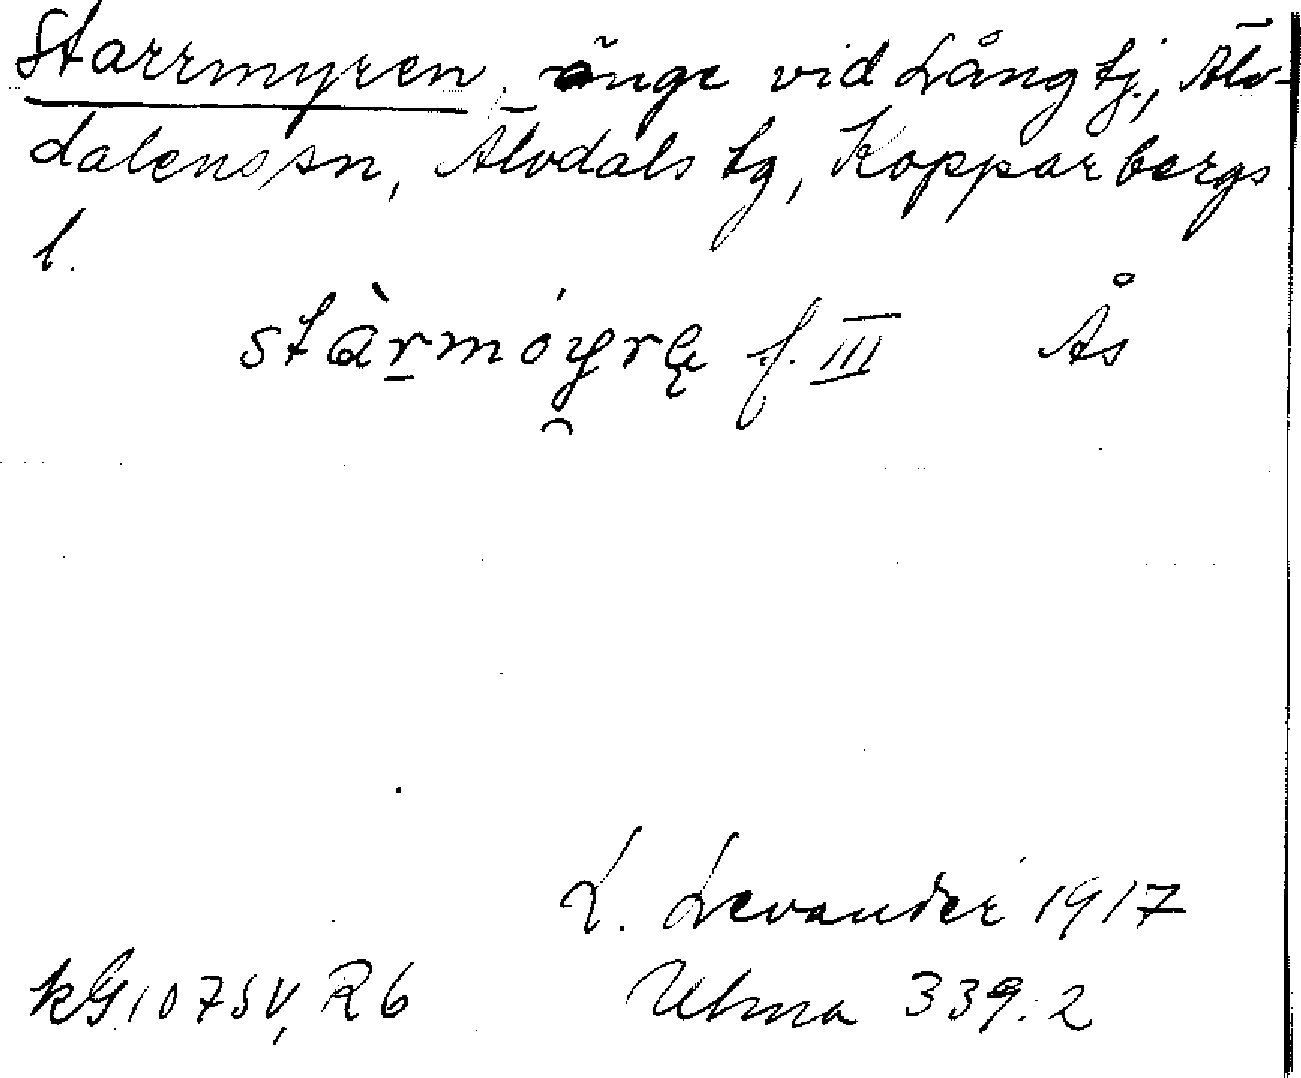 Starrmyren, änge vid Långtj., Älv-
dalens sn, Älvdals tg, Kopparbergs
l.
stàrmóyrę f. III Ås
L. Levander 1917
kG107SV, R6 Ulma 339:2